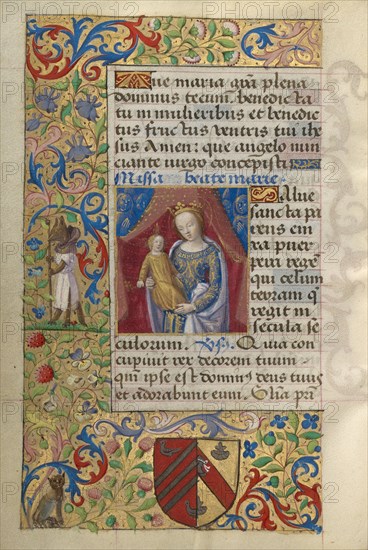 Aue maria gra plena
dominus tecum. benedicta
tu in mulieribus et benedic
tus fructus ventris tui ihe
sus Amen: que angelo nun
ciante uirgo concepisti
Missa beate marie
Salue
sancta pa
rens eni
xa puer
pera regē
qui celum
terram q
regit in
secula se
culorum. Quia con
cupiuit rex decorem tuum
qm ipse est domin deus tuus
et adorabunt eum. Glia pri